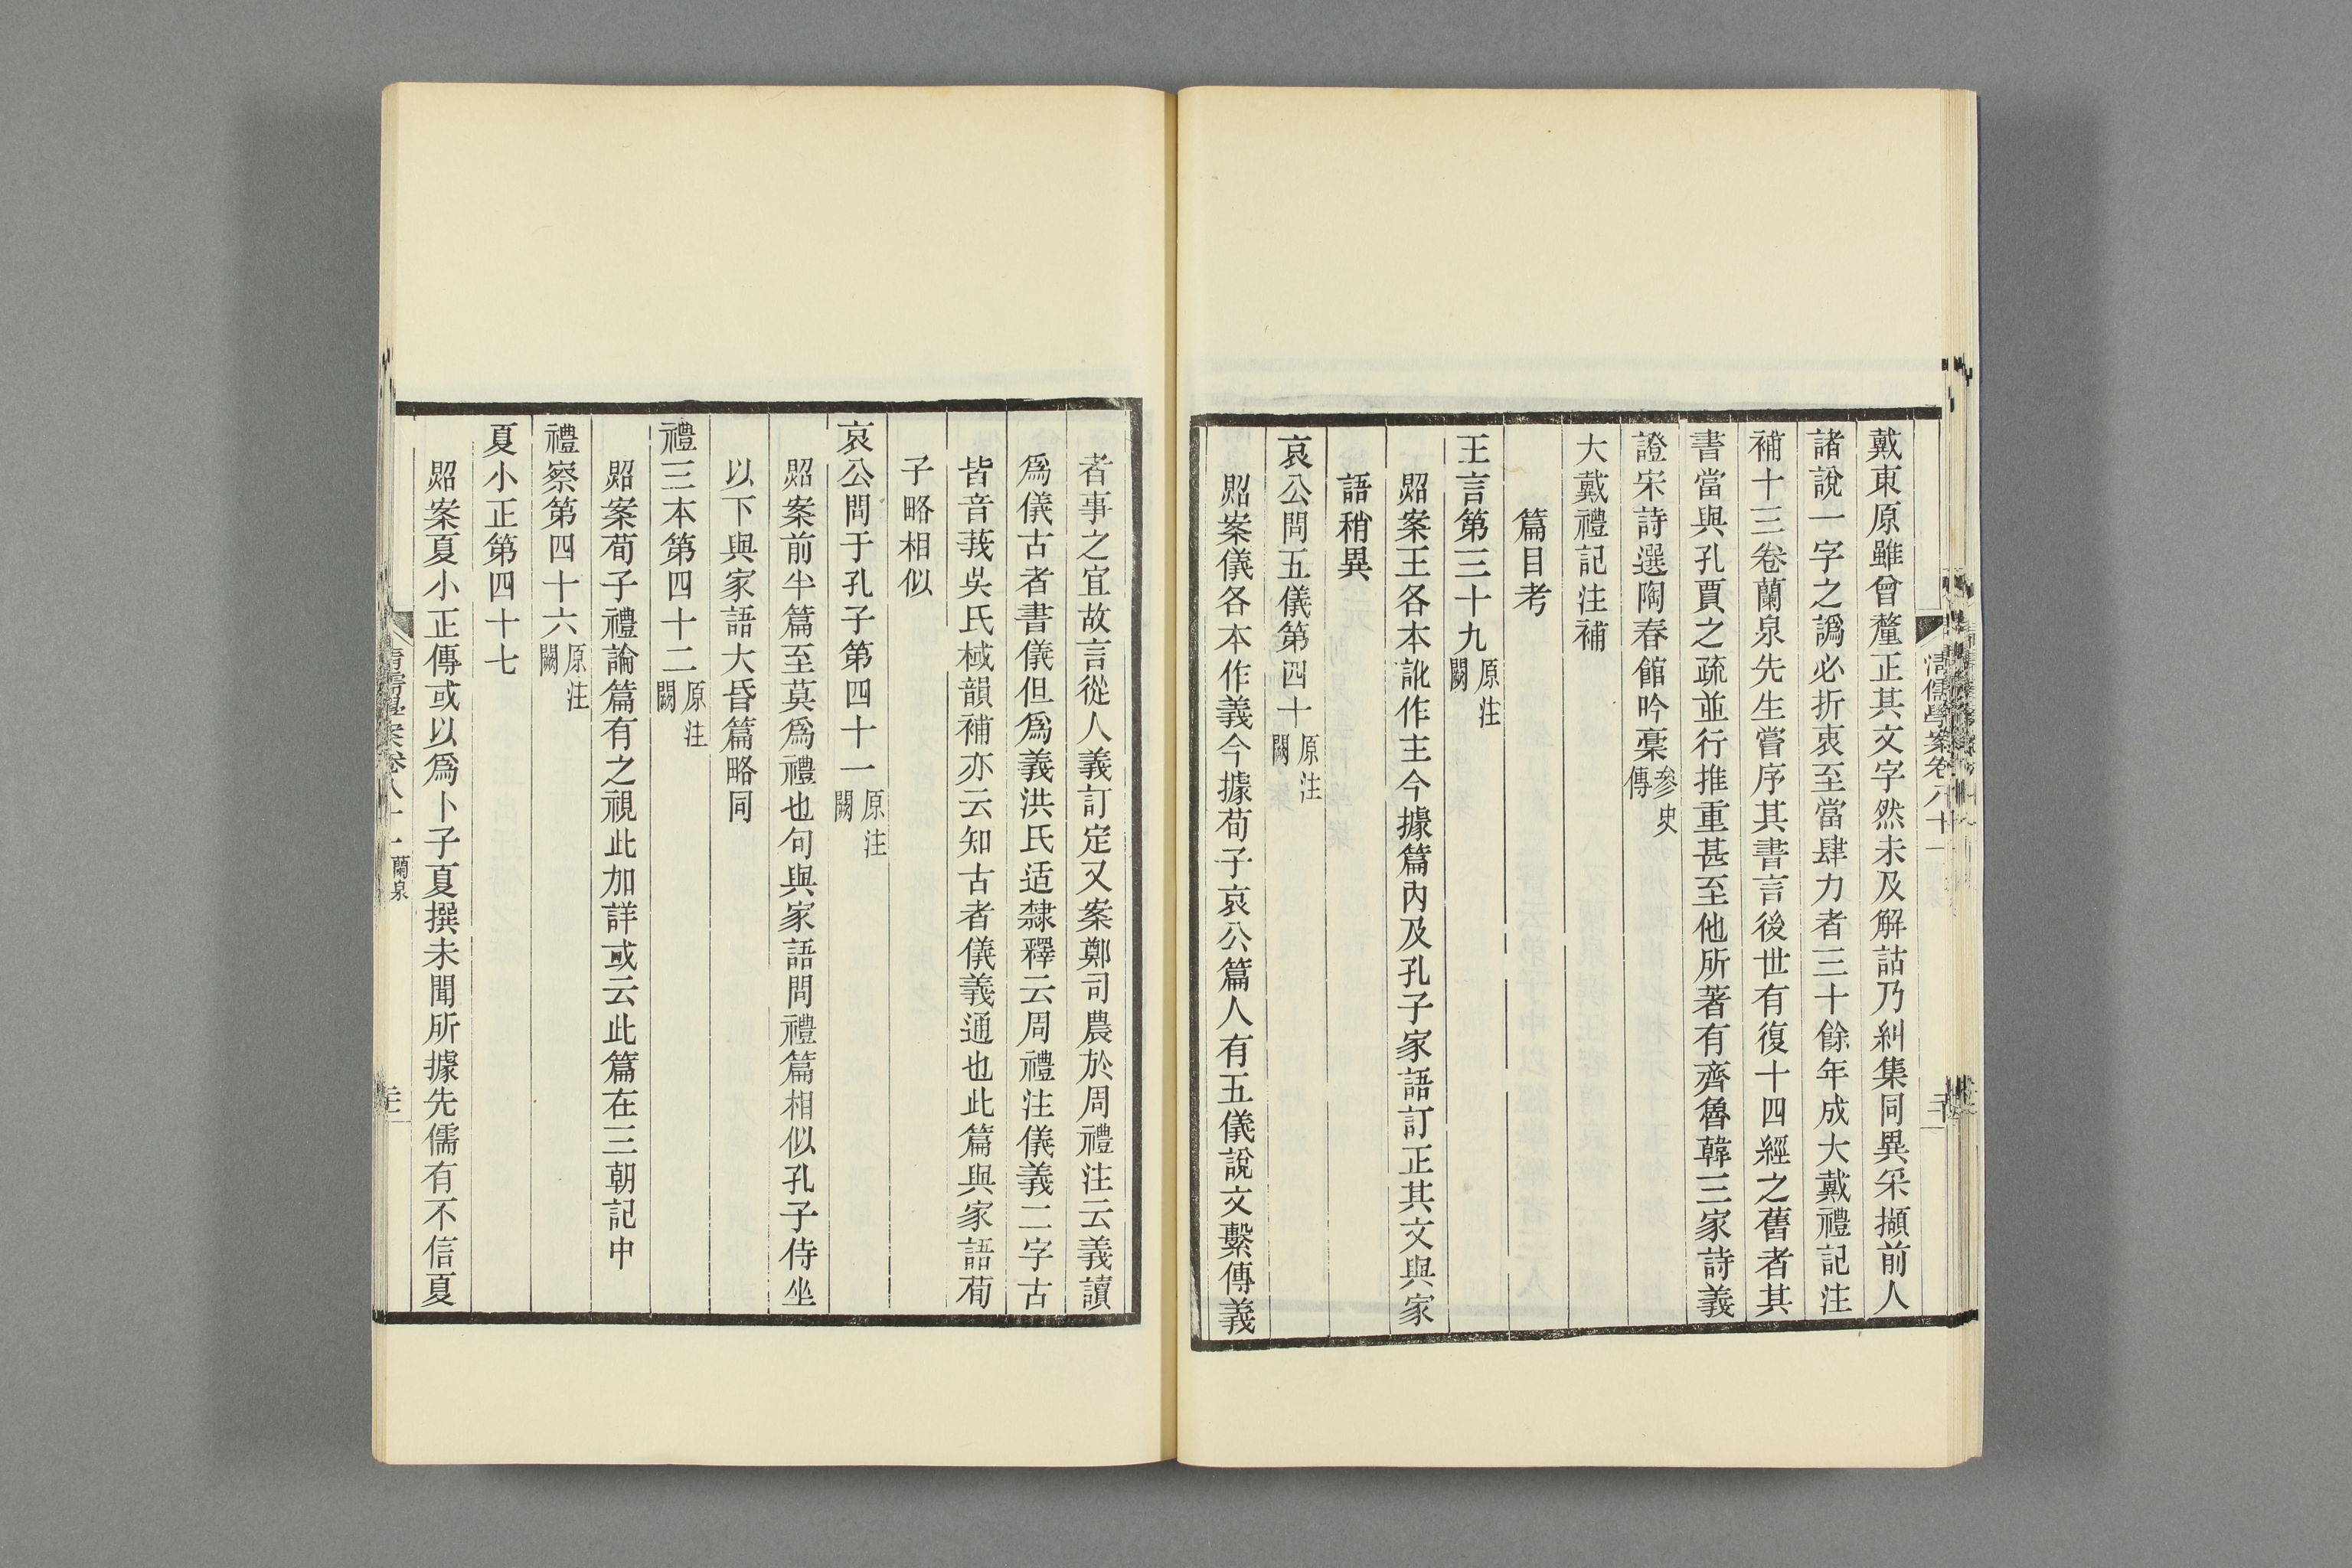 戴東原雖曾釐正其文字然未及解詁乃糾集同異采擷前人
諸說一字之譌必折衷至當肆力者三十餘年成大戴禮記注
補十三卷蘭泉先生嘗序其書言後世有復十四經之舊者其
書當與孔賈之疏並行推重甚至他所著有齊魯韓三家詩義
證宋詩選陶春館吟稾參史傳
大戴禮記注補
篇目考
王言第三十九原注闕
照案王各本訛作主今據篇內及孔子家語訂正其文與家
語稍異
哀公問五儀第四十原注闕
照案儀各本作義今據荀子哀公篇人有五儀說文繫傳義
者事之宜故言從人義訂定又案鄭司農於周禮注云義讀
爲儀古者書儀但爲義洪氏适隸釋云周禮注儀義二字古
皆音莪吳氏棫韻補亦云知古者儀義通也此篇與家語荀
子略相似
哀公問于孔子第四十一原注闕
照案前半篇至莫爲禮也句與家語問禮篇相似孔子侍坐
以下與家語大昏篇略同
禮三本第四十二原注闕
照案荀子禮論篇有之視此加詳或云此篇在三朝記中
禮察第四十六原注闕
夏小正第四十七
照案夏小正傳或以爲卜子夏撰未聞所據先儒有不信夏
清儒學案卷八十一
清儒學案卷八十一 蘭泉